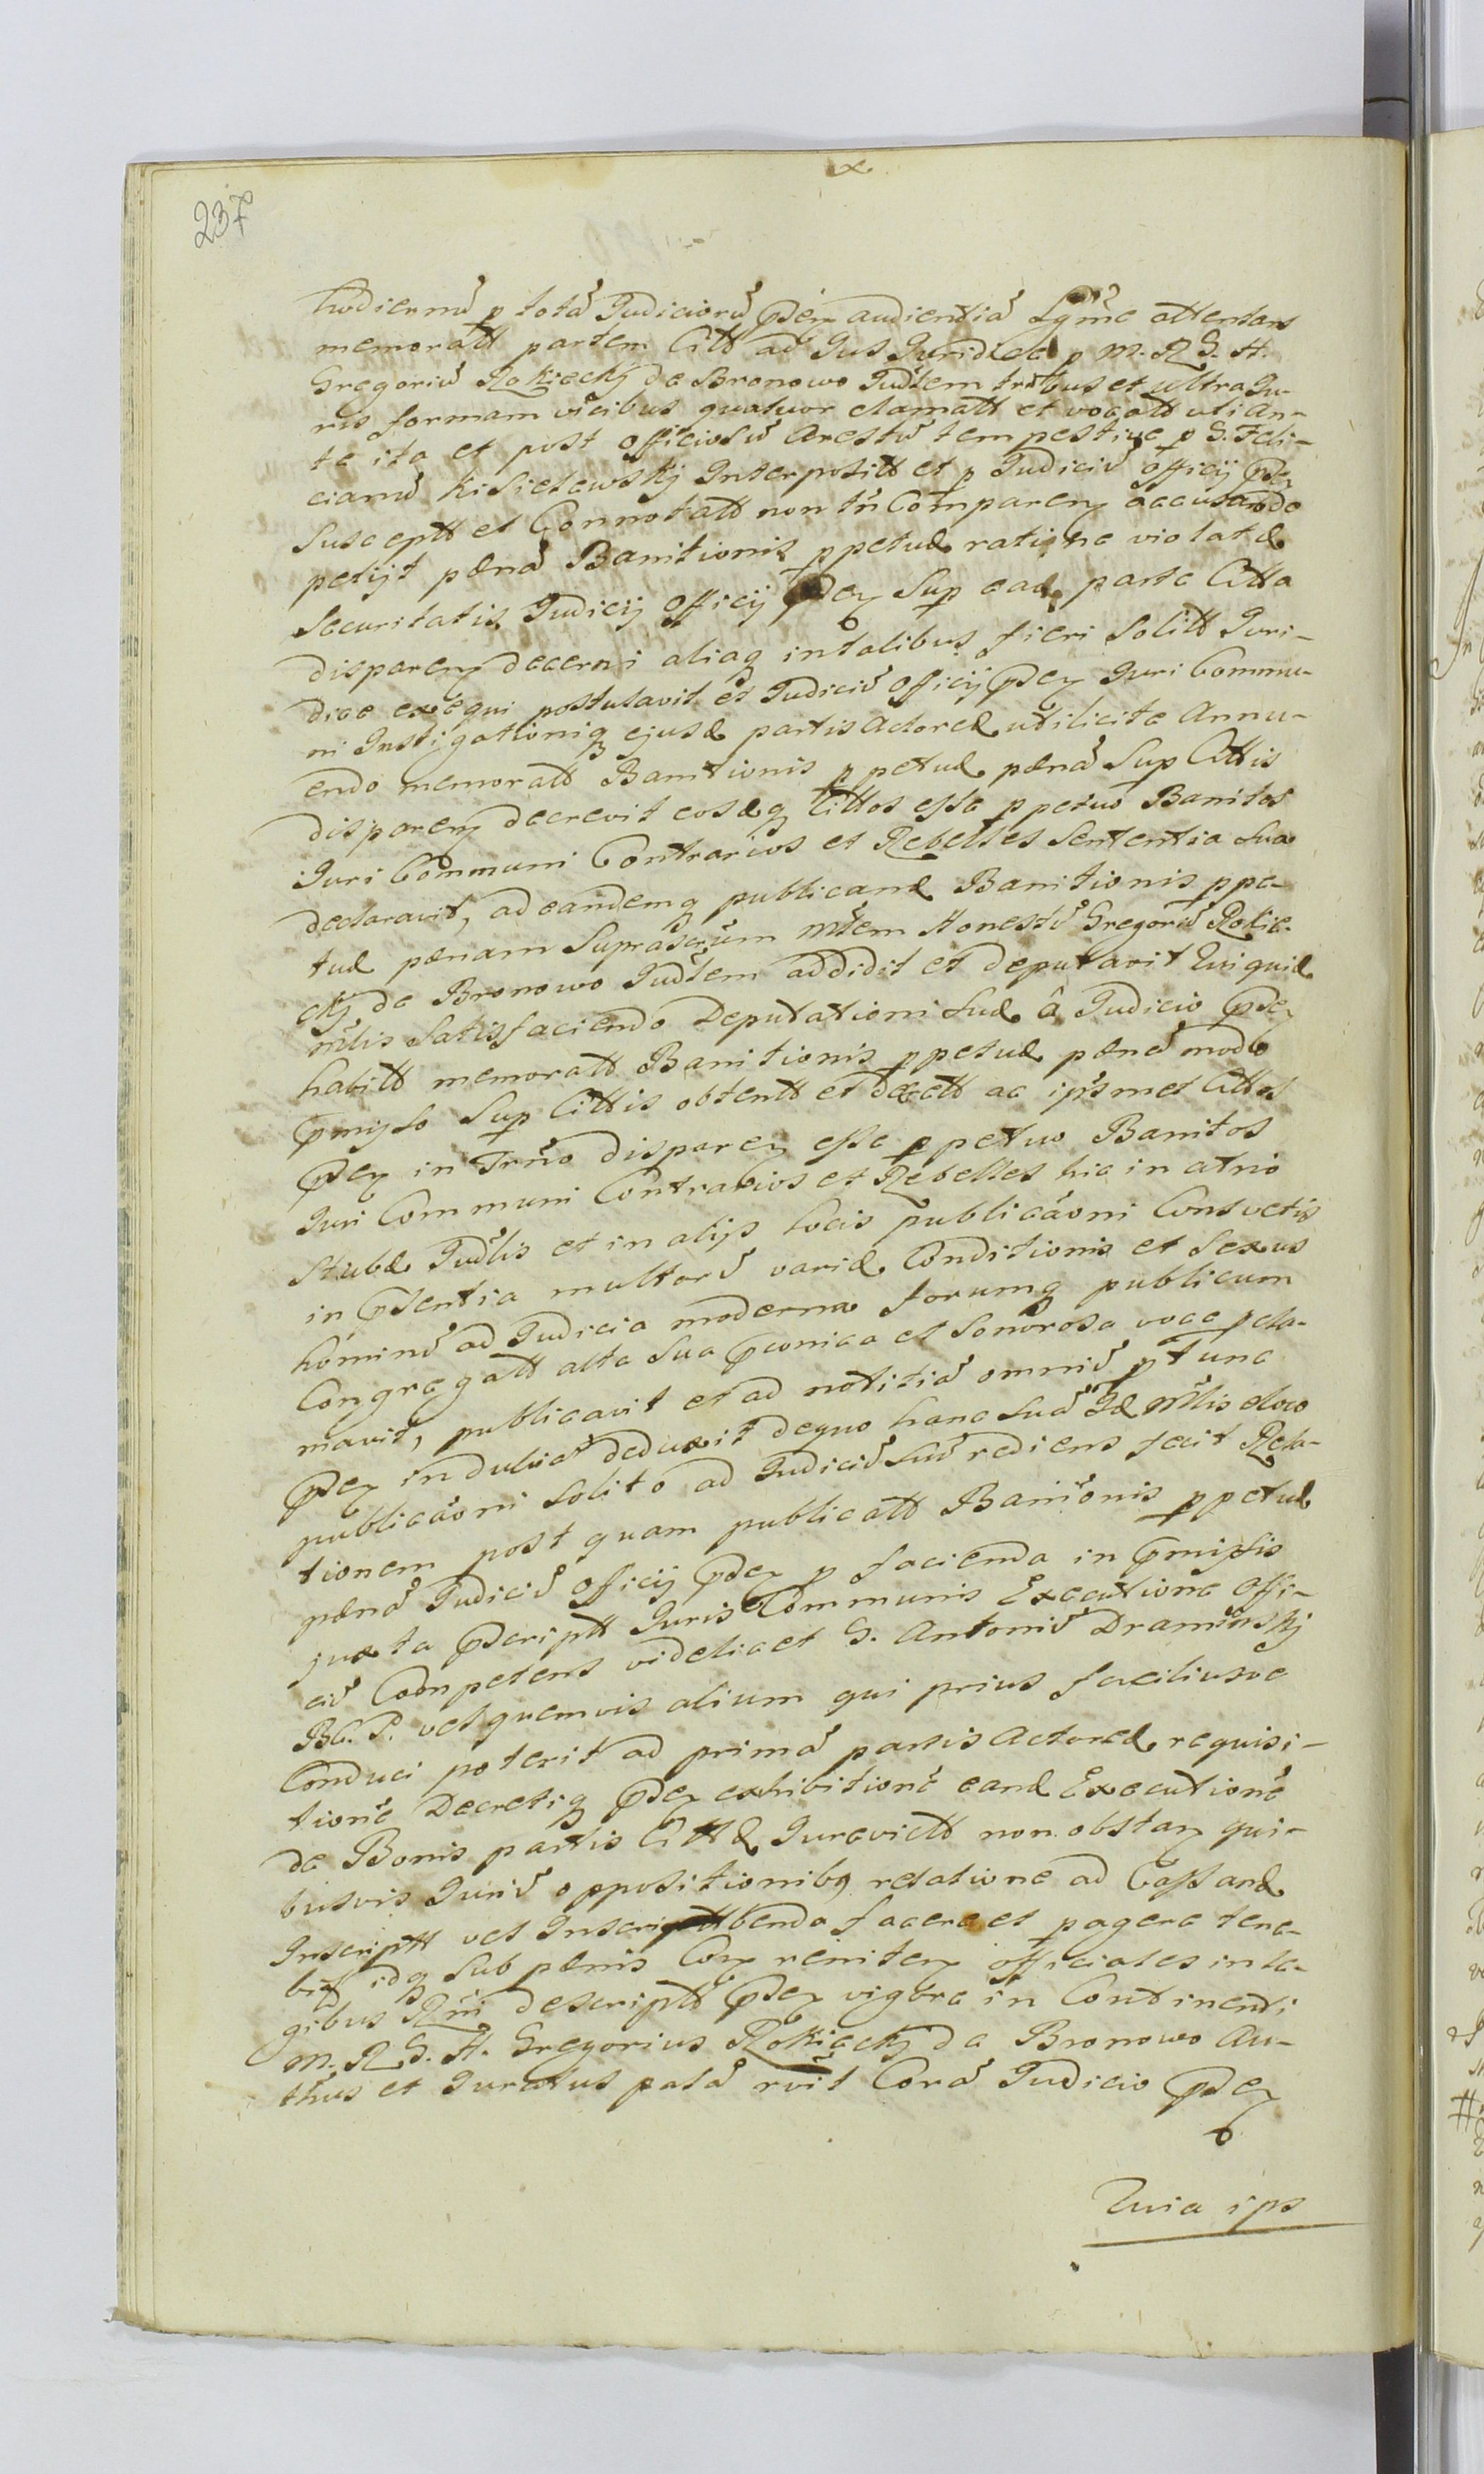 237
hodiernũ p totã Judiciorũ pñdem audientiã Lgtme attentans
memoratt partem Citt ad Jus Juridice p M. R. G. H.
Gregoriũ Rokiecky de Bronowo Judlem tribus et ultra Ju-
ris formam vicibus quatuor clamatt et vocatt uti An-
te ita et post Officiosũ Arestũ tempestive p G. Feli-
cianũ Kisielewsky Interpositt et p Judiciũ Officij pñdem
Susceptt et Connotatt non tñ Comparen accusando
petijt pænã Banitionis ppetuæ ratione violatæ
Securitatis Judicij Officij pñdem Sup eadem parte Citta
disparen decerni aliaq in talibus fieri Solitt Juri-
dice exequi postulavit et Judiciũ Officij pñdem Juri Commu-
ni Instigationiq ejusd partis Actoreæ utilicite Annu-
endo memoratt Banitionis ppetuæ pænã Sup Cittis
disparen decrevit eosdq Cittos esse ppetuo Banitos
Juri Communi Contrarios et Rebelles Sententia Sua
declaravit, ad eandemq publicand Banitionis ppe-
tuæ pænam Suprascrum Mtem Honestũ Gregoriũ Rokie-
cky de Bronowo Judlem addidit et deputavit Qui quid
Mtlis Satisfaciendo Deputationi Suæ â Judicio pñdem
habitt memoratt Banitionis ppetuæ pænã modo
pmisso Sup Cittis obtentt et decrett ac ipsmet Cittos
pñdem in Trno disparen esse ppetuo Banitos
Juri Communi Contrarios et Rebelles hic in atrio
Stubæ Judlis et in alijs Locis publicaõni Consvetis
in pñsentia multorũ variæ Conditionis et Sexus
hominũ ad Judicia moderna forumq publicum
Congregatt alta Sua pconica et Sonorosa voce pcla-
mavit, publicavit et ad notitiã omniũ p tunc
pñdem indubiã deduxit de quo hanc Suã Id Mtlis eloco
publicaõni Solito ad Judiciũ Suũ rediens fecit Rela-
tionem post quam publicatt Baniõnis ppetuæ
pænã Judiciũ Officij pñdem p facienda in pmissis
juxta pscriptt Juris Communis Executione Offi-
ciũ Competens videlicet G. Antoniũ Dramiński
B. C. P. vel quemvis alium qui prius faciliusve
Conduci poterit ad primã partis Actoreæ requisi-
tionẽ Decretiq pñdem exhibitionẽ eand Executionẽ
de Bonis partis Cittæ Jurevictt non obstan qui-
busvis Juriũ oppositionibq relatione ad Cassand
Inscriptt vel Inscribenda facere et pagere tene-
bit idq Sub pænis Con reniten Officiales in le-
gibus Rni descriptt pñdem vigore in Continenti
M. R. G. H. Gregorius Rokiecky de Bronowo Au-
thus et Juratus palã rvit Corã Judicio pñdem
Quia ips